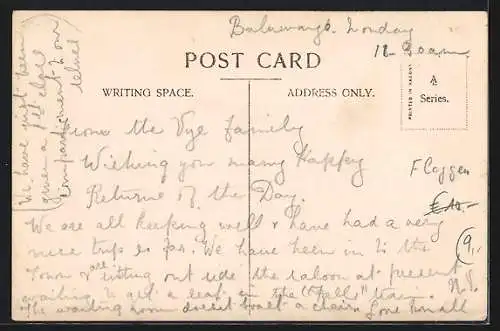 Sunday
12.30am
POST CARD
WRITING SPACE.
ADDRESS ONLY.
PRINTED IN SAXONY
A
Series.
We have just been
given a 1st class
Compartment & our
From the Vye Family
Wishing you many Happy
Returns of the Day.
We are all keeping well & have had a very
nice trip so far. We have been in to the
Town & are sitting out side the saloon at present
waiting to get a seat in the " train.
The waiting room doesn't boast a chair
Flaggen
€10.-
9,-